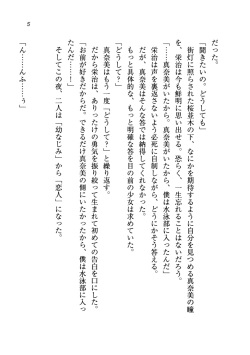 5
だった。
「聞きたいの。どうしても」
街灯に照らされた桜並木の下、なにかを期待するように自分を見つめる真奈美の瞳
を、栄治は今も鮮明に思い出せる。恐らく、一生忘れることはないだろう。
「……真奈美がいたから。真奈美がいたから、僕は水泳部に入ったんだ」
栄治は声を裏返さないように必死に自制しながら、どうにかそう答える。
だが、真奈美はそんな答では納得してくれなかった。
もっと具体的な、もっと明確な答を目の前の少女は求めていた。
「どうして？」
真奈美はもう一度「どうして？」と繰り返す。
だから栄治は、ありったけの勇気を振り絞って初めての告白を口にした。
「お前が好きだから。できるだけ真奈美の側にいたかったから、僕は水泳部に入っ
たんだ……」
そしてこの夜、二人は「幼なじみ」から「恋人」になった。
「ん……んふ……う」